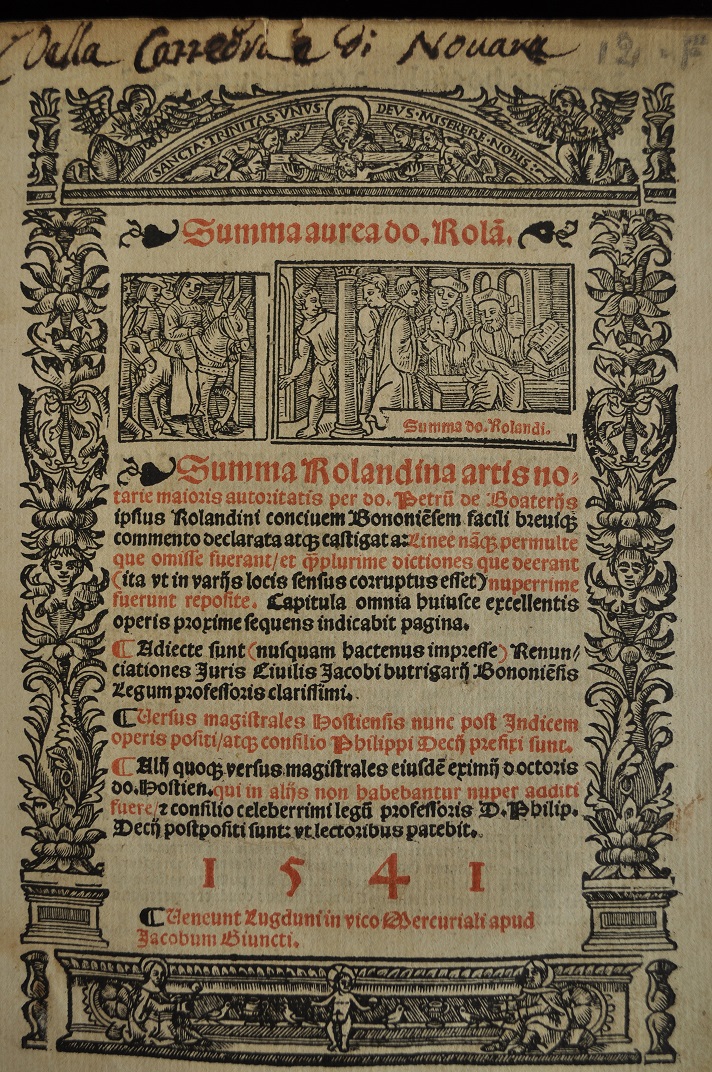 Della Carredrale di Nouara 12. F
SANCTA·TRINITAS·VNVS DEVS·MISERERE·NOBIS:
Summa aurea do. Rolã.
Summa do. Rolandi.
Summa Rolandina artis no⸗
tarie maioris autoritatis per do. Petrũ de Boaterijs
ipsius Rolandini conciuem Bononiẽsem facili breuiqꝫ
commento declarata atqꝫ castigata: Linee nãqꝫ permulte
que omisse fuerant/et q̃plurime dictiones que deerant
(ita vt in varijs locis sensus corruptus esset) nuperrime
fuerunt reposite. Capitula omnia huiusce excellentis
operis proxime sequens indicabit pagina.
¶ Adiecte sunt (nusquam hactenus impresse) Renun⸗
ciationes Juris Ciuilis Jacobi butrigarij Bononiẽsis
Legum professoris clarissimi.
¶ Versus magistrales Hostiensis nunc post Indicem
operis positi/atqꝫ consilio Philippi Decij prefixi sunt.
¶ Alij quoqꝫ versus magistrales eiusdẽ eximij doctoris
do. Hostien. qui in alijs non habebantur nuper additi
fuere/⁊ consilio celeberrimi legũ professoris D. Philip.
Decij postpositi sunt: vt lectoribus patebit.
1541
¶ Veneunt Lugduni in vico Mercuriali apud
Jacobum Giuncti.